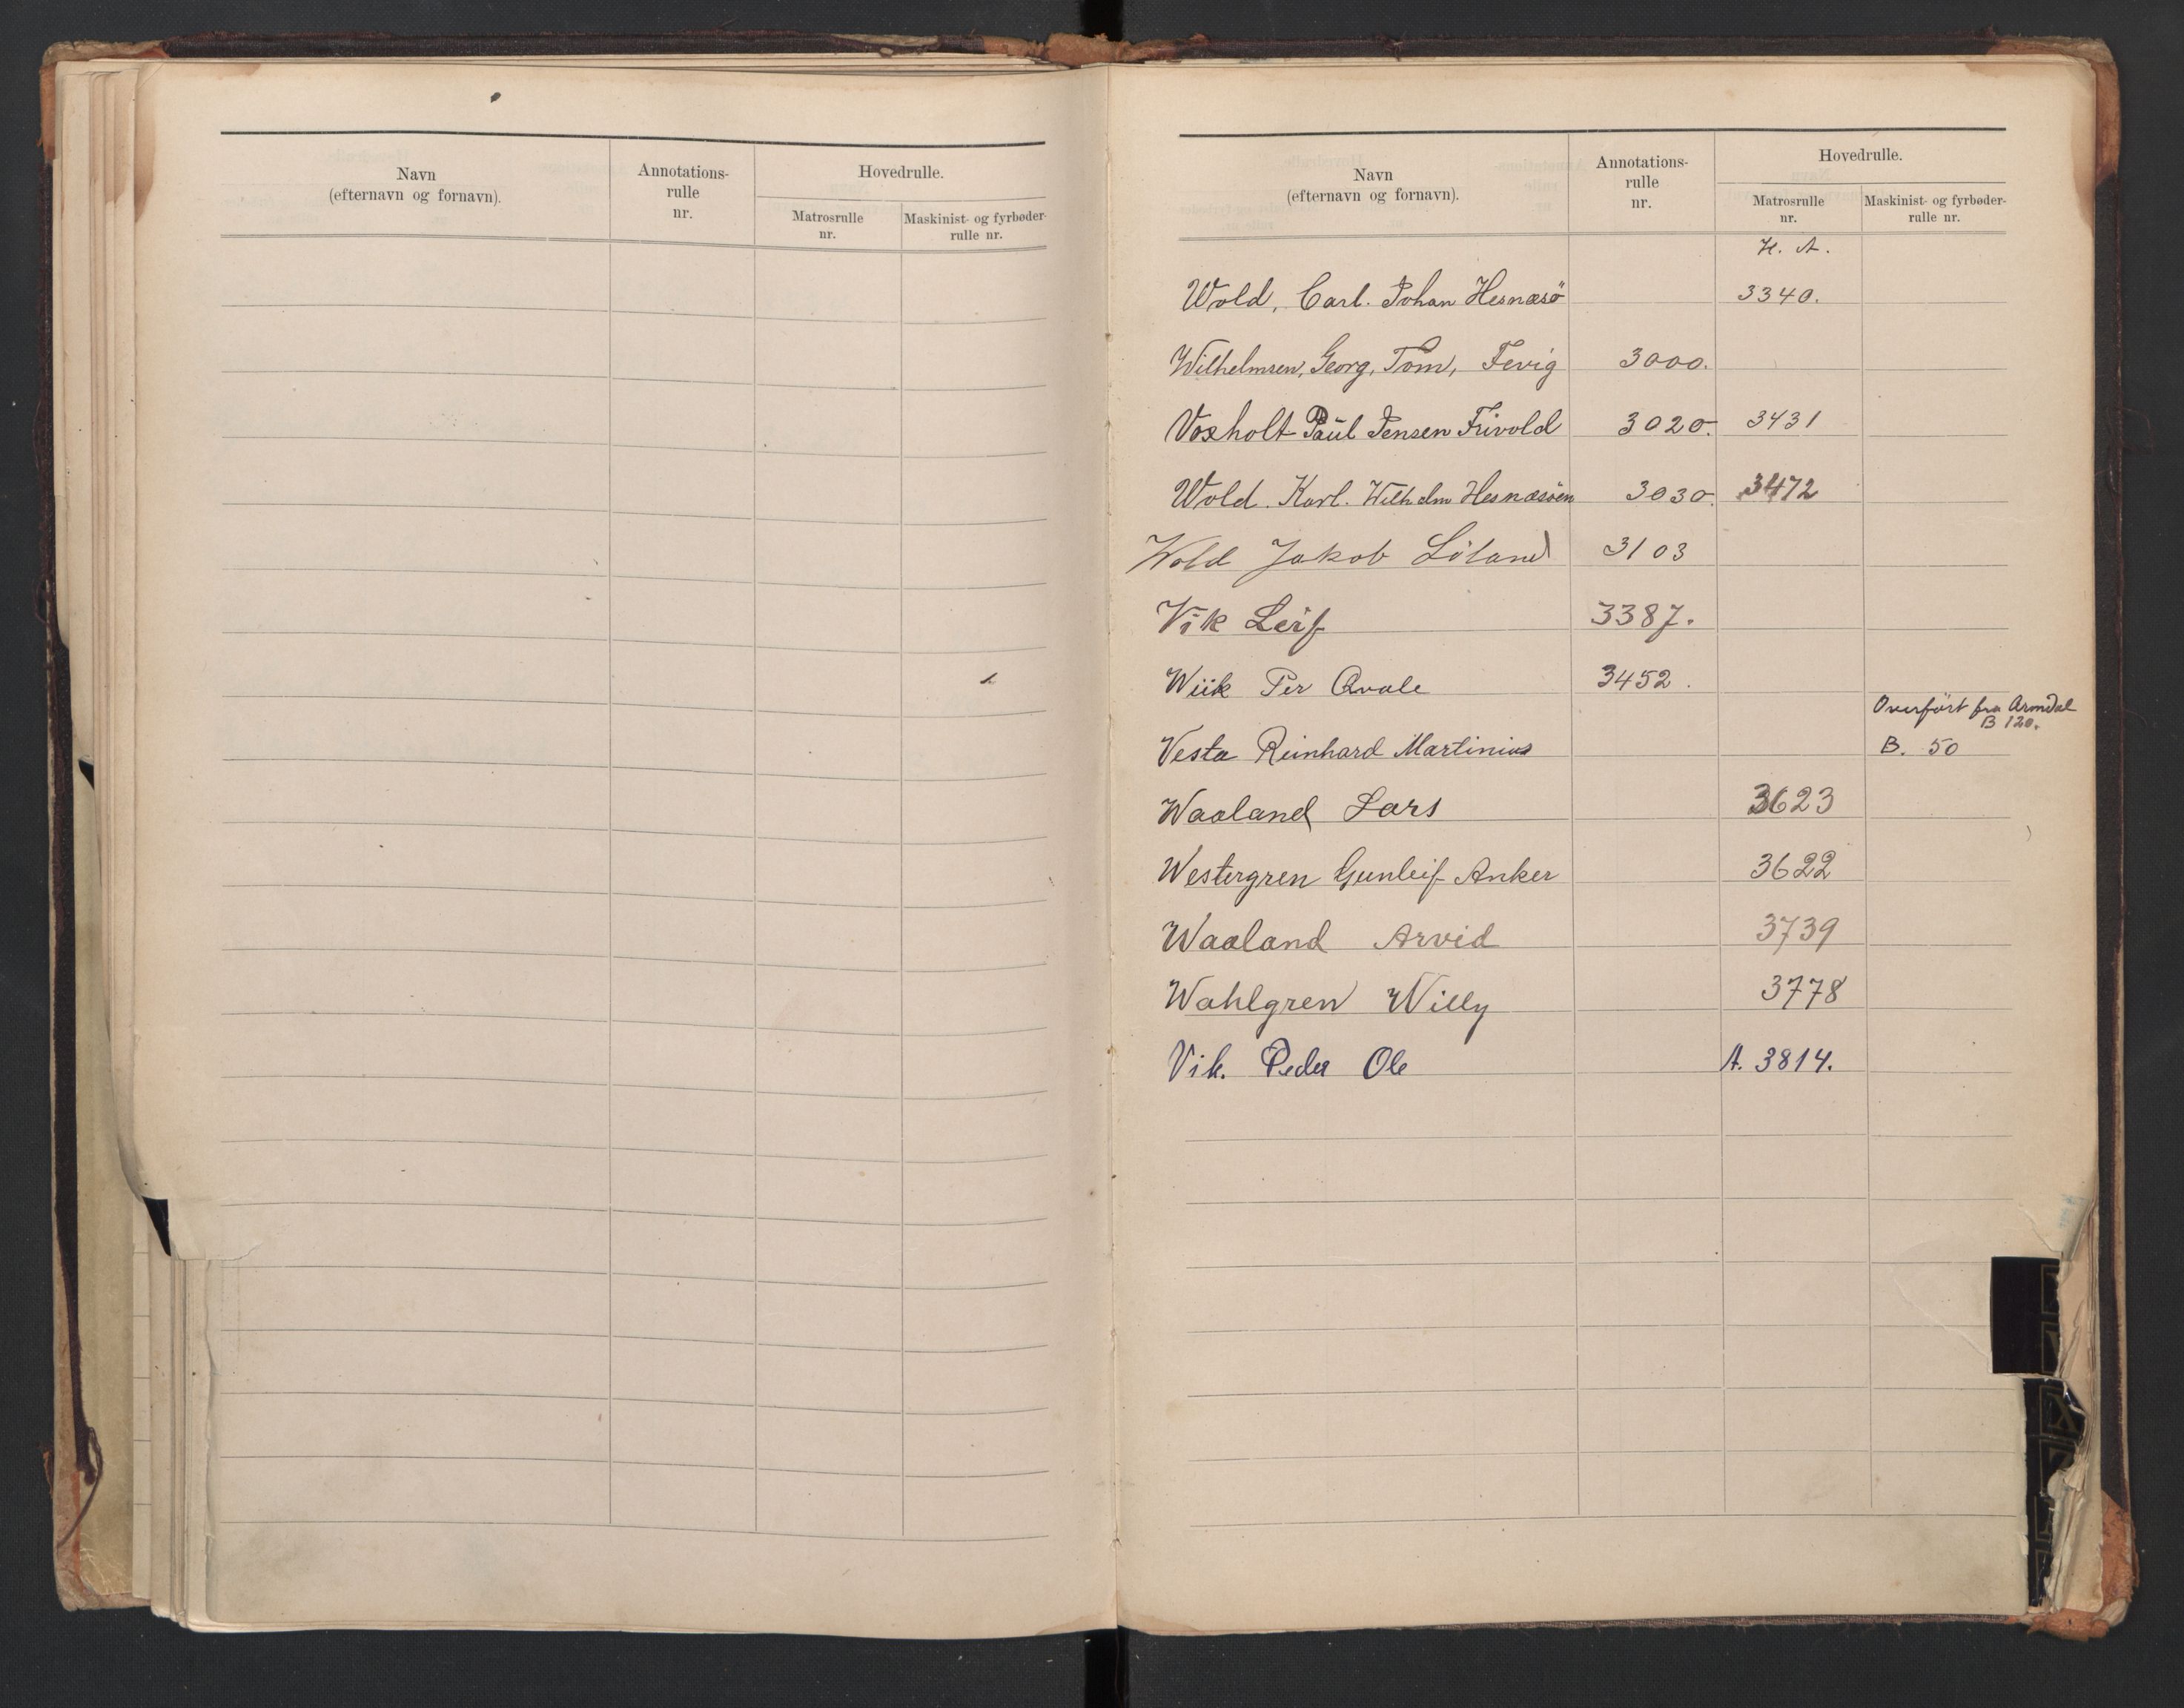 Navn
(efternavn og fornavn).
Annotations-
rulle
nr.
Hovedrulle.
Matrosrulle
nr.
Maskinist- og fyrbøder-
rulle nr.
Navn
(efternavn og fornavn).
Annotations-
rulle
nr.
Hovedrulle.
Matrosrulle
nr.
Maskinist- og fyrbøder-
rulle nr.
H. A.
Wold, Carl. Johan Hesnæsö 3340.
Wilhelmsen, Georg, Tom, Fevig 3000.
Voxholt Paul Jensen Frivold 3020. 3431
Wold. Karl. Wilhelm Hesnæsöen 3030. 3472
Wold Jakob Löland 3103
Vik Leif 3387.
Wiik Per Qvale 3452.
Overført fra Arendal
B 120.
Vesta Reinhard Martinius B. 50
Waaland Lars 3623
Westergren Gunleif Anker 3622
Waaland Arvid 3739
Wahlgren Willy 3778
Vik. Peder Ole A. 3814.